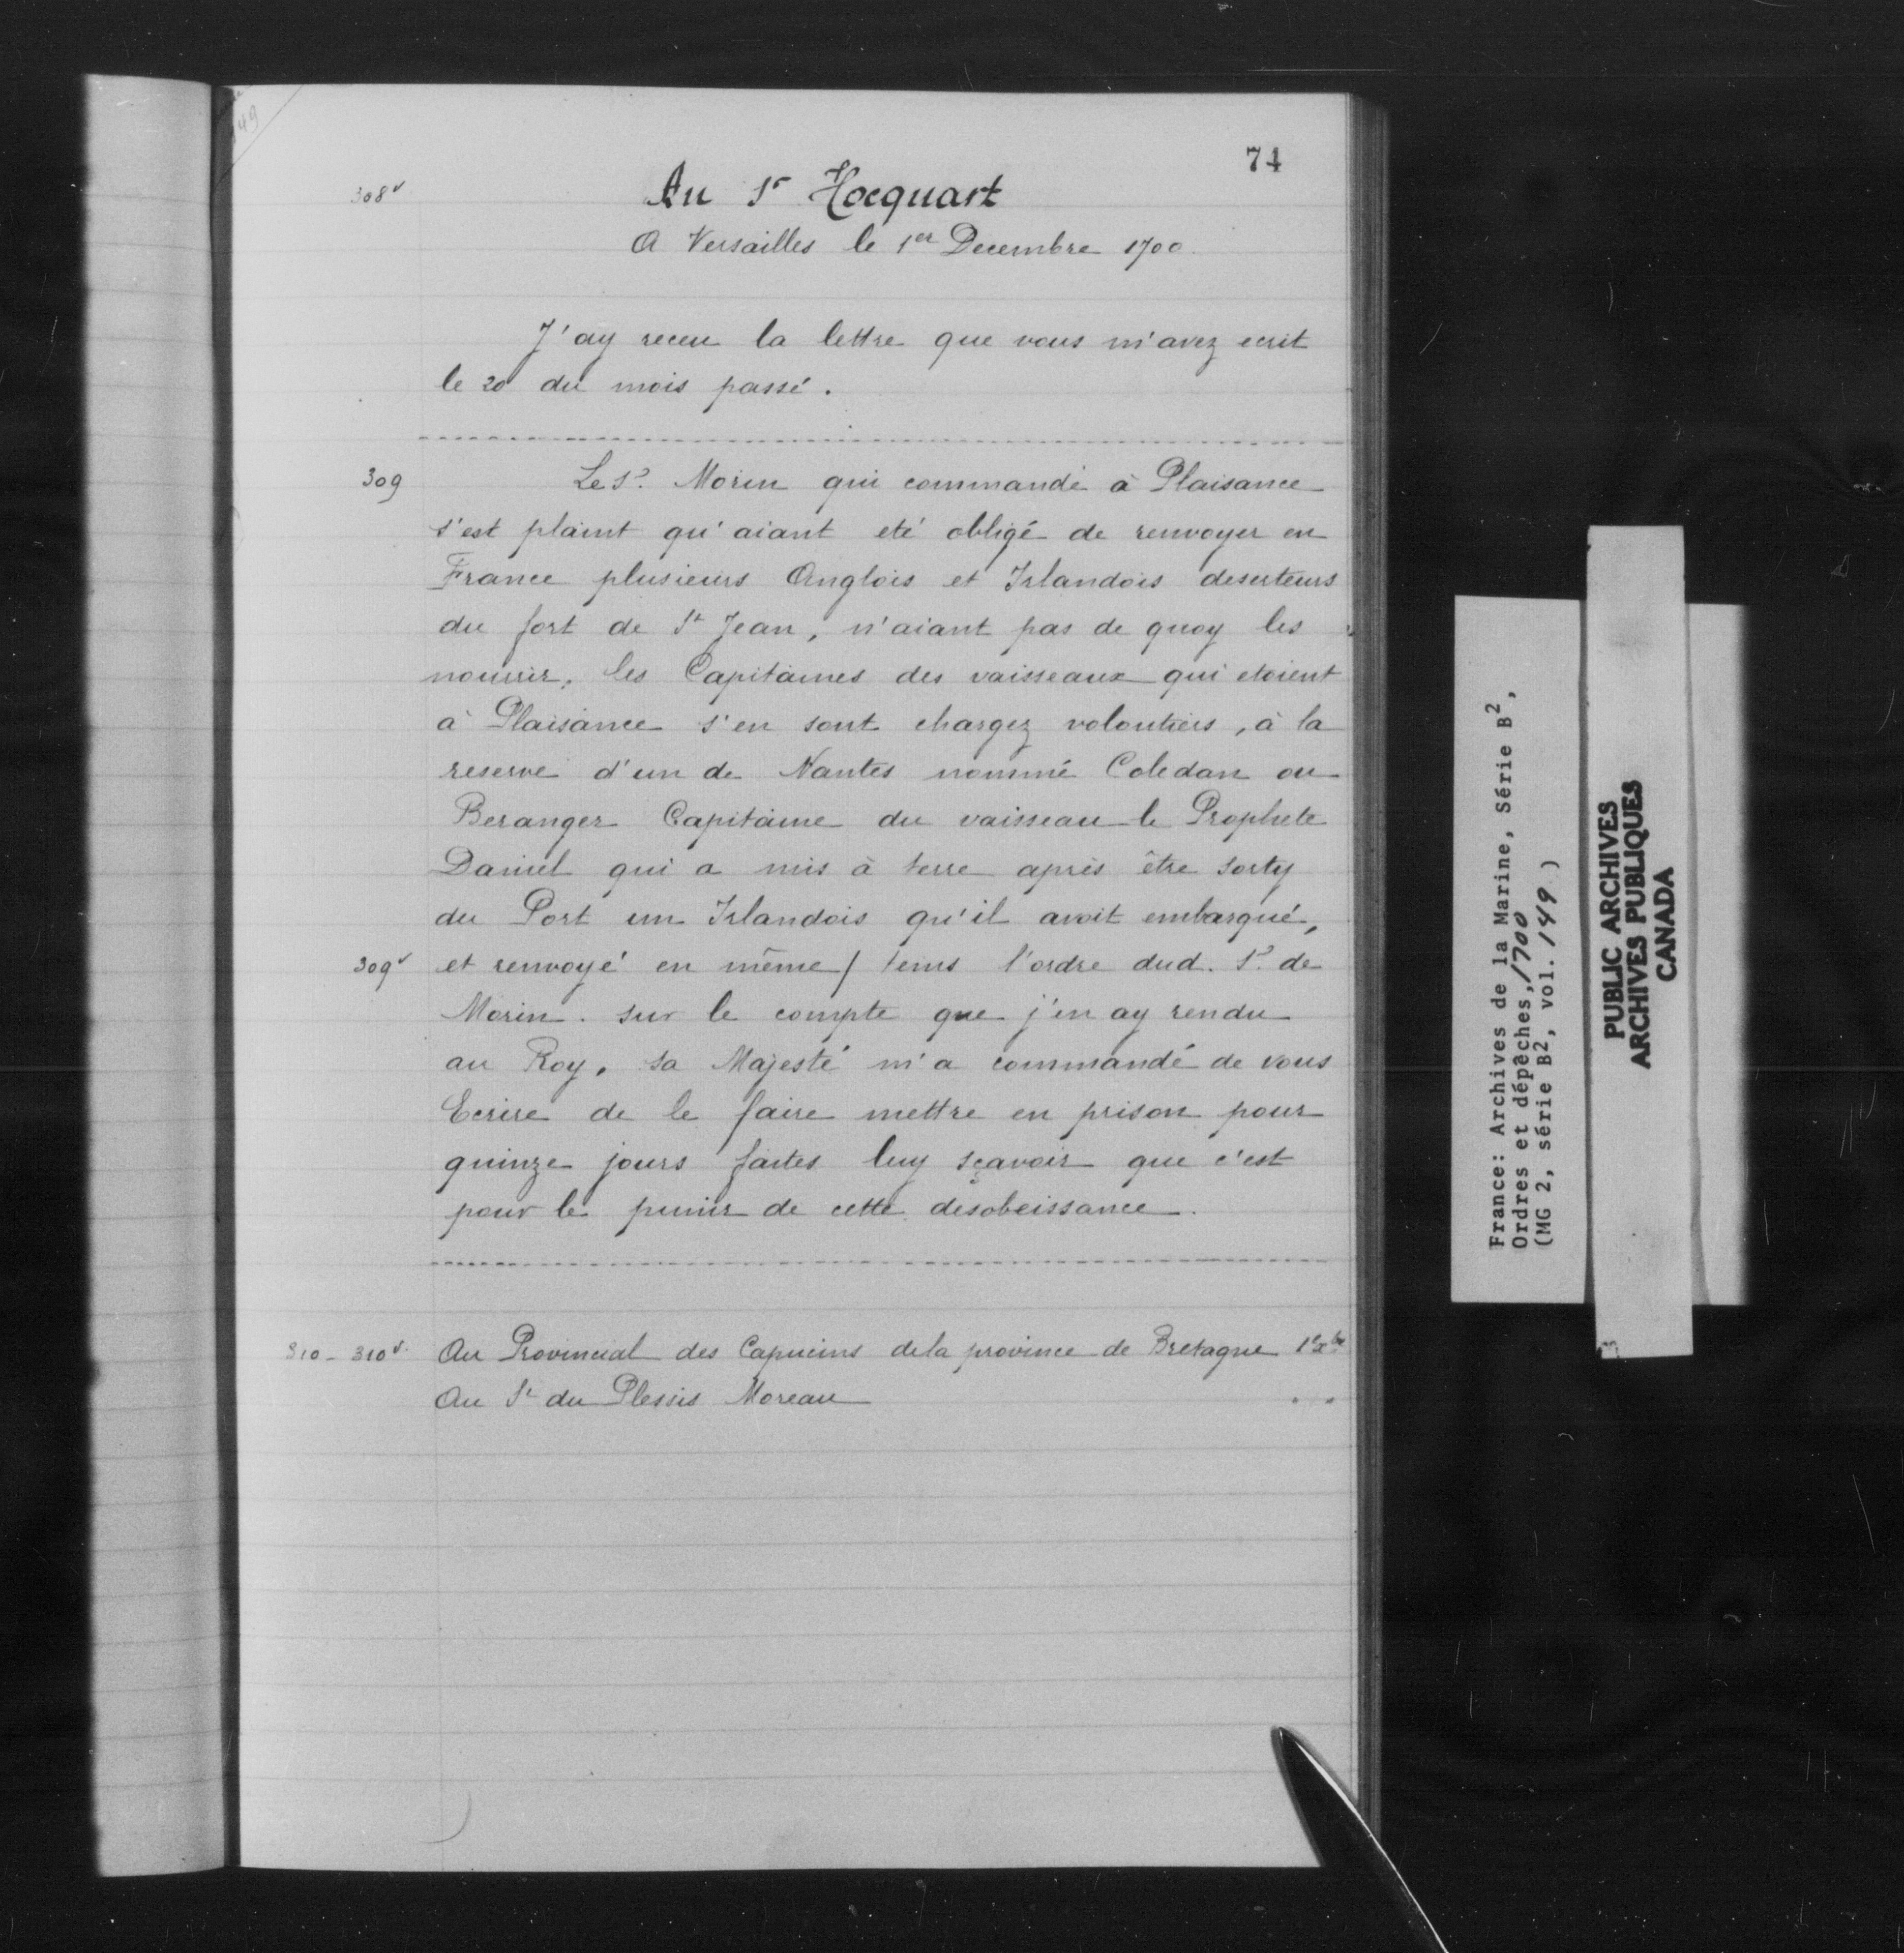 149
74
308v
Au Sr Hocquart
A Versailles le 1er Decembre 1700.
J'ay receu la lettre que vous m'avez ecrit
le 20 du mois passé.
309
Le Sr. Morin qui commande à Plaisance
s'est plaint qu'aiant eté obligé de renvoyer en
France plusieurs Anglois et Irlandois deserteurs
du fort de St Jean, n'aiant pas de quoy les
nourrir, les Capitaines des vaisseaux qui etoient
à Plaisance s'en sont chargez volontiers, à la
reserve d'un de Nantes nommé Coledan ou
Beranger Capitaine du vaisseau le Prophete
Daniel qui a mis à terre après être sorty
du Port un Irlandois qu'il avoit embarqué,
309v
et renvoyé en même / tems l'ordre dud. Sr. de
Morin. sur le compte que j'en ay rendu
au Roy, sa Majesté m'a commandé de vous
Ecrire de le faire mettre en prison pour
quinze jours faites luy sçavoir que c'est
pour le punir de cette desobeissance.
310 - 310v.
Au Provincial des Capucins de la province de Bretagne 1er Xbre
Au Sr du Plessis Moreau " "
France: Archives de la Marine, Série B2,
Ordres et dépêches, 1700
(MG 2, série B2, vol. 149)
PUBLIC ARCHIVES
ARCHIVES PUBLIQUES
CANADA